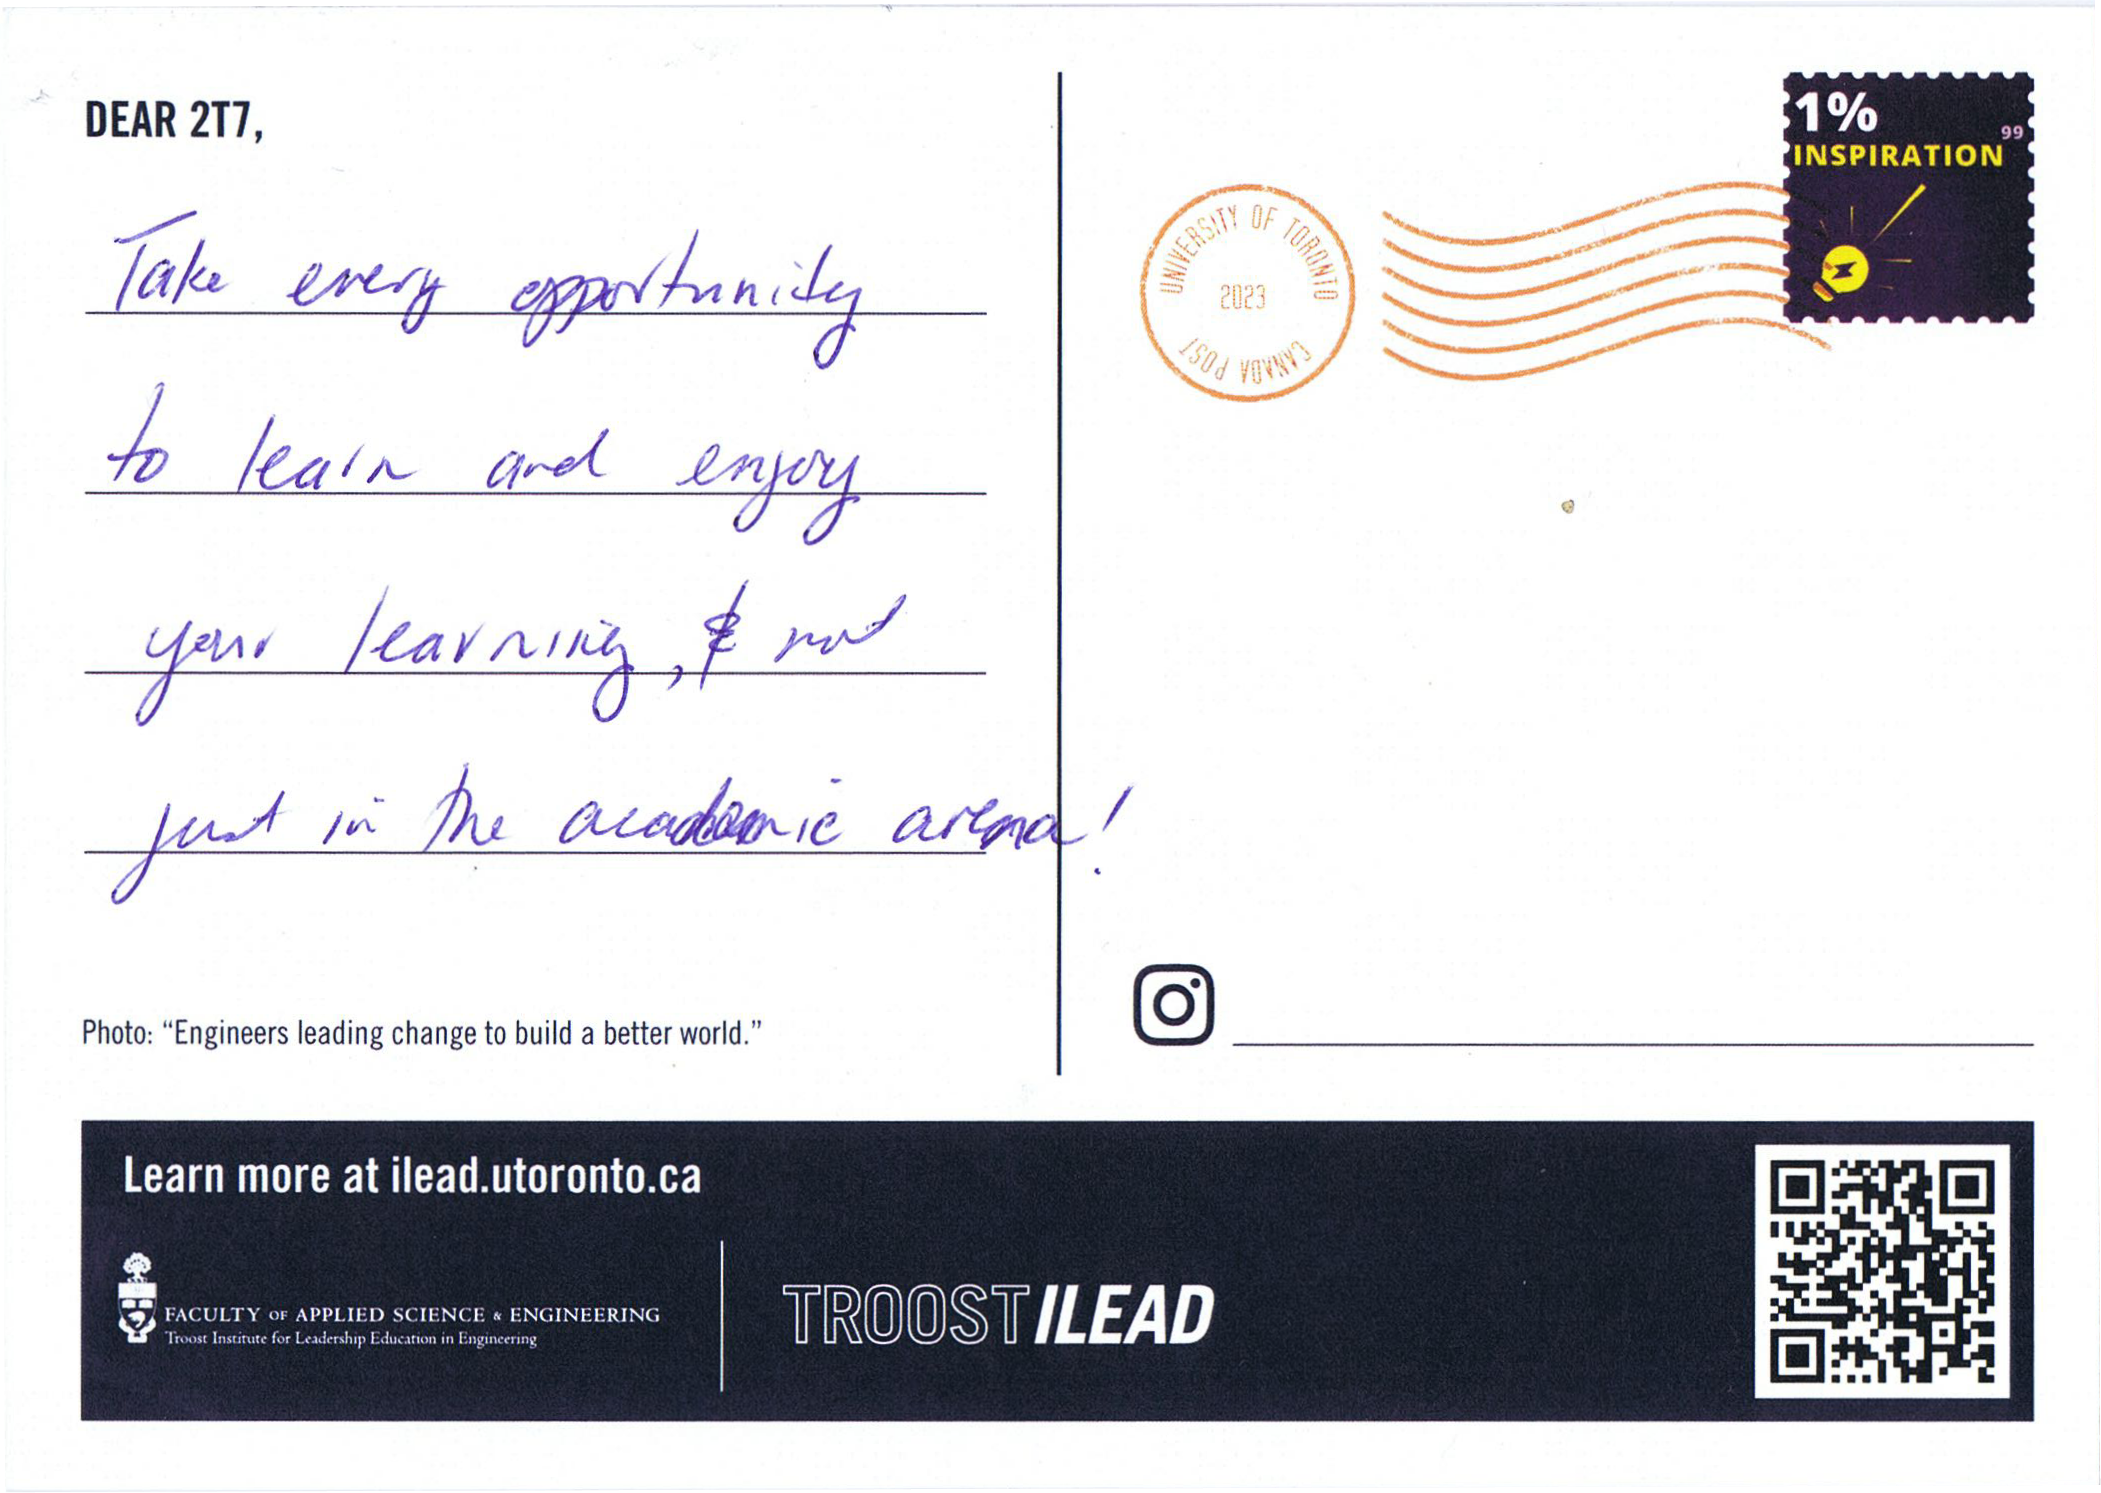 DEAR 2T7,
Take every opportunity
to learn and enjoy
your learning, & not
just in the academic arena!
Photo: “Engineers leading change to build a better world.”
1%
99
INSPIRATION
UNIVERSITY OF TORONTO
2023
CANADA POST
Learn more at ilead.utoronto.ca
FACULTY OF APPLIED SCIENCE & ENGINEERING
Troost Institute for Leadership Education in Engineering
TROOST ILEAD